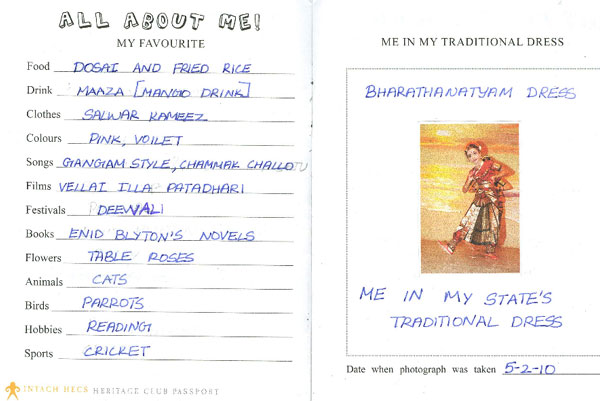 ALL ABOUT ME!
MY FAVOURITE
Food DOSAI AND FRIED RICE
Drink MAAZA [MANGO DRINK]
Clothes SALWAR KAMEEZ
Colours PINK, VOILET
Songs GANGIAM STYLE, CHAMMAK CHALLO
Films VELLAI ILLA PATADHARI
Festivals DEEWALI
Books ENID BLYTON'S NOVELS
Flowers TABLE ROSES
Animals CATS
Birds PARROTS
Hobbies READING
Sports CRICKET
INTACH HECS HERITAGE CLUB PASSPORT
ME IN MY TRADITIONAL DRESS
BHARATHANATYAM DRESS
ME IN MY STATE'S
TRADITIONAL DRESS
Date when photograph was taken 5-2-10